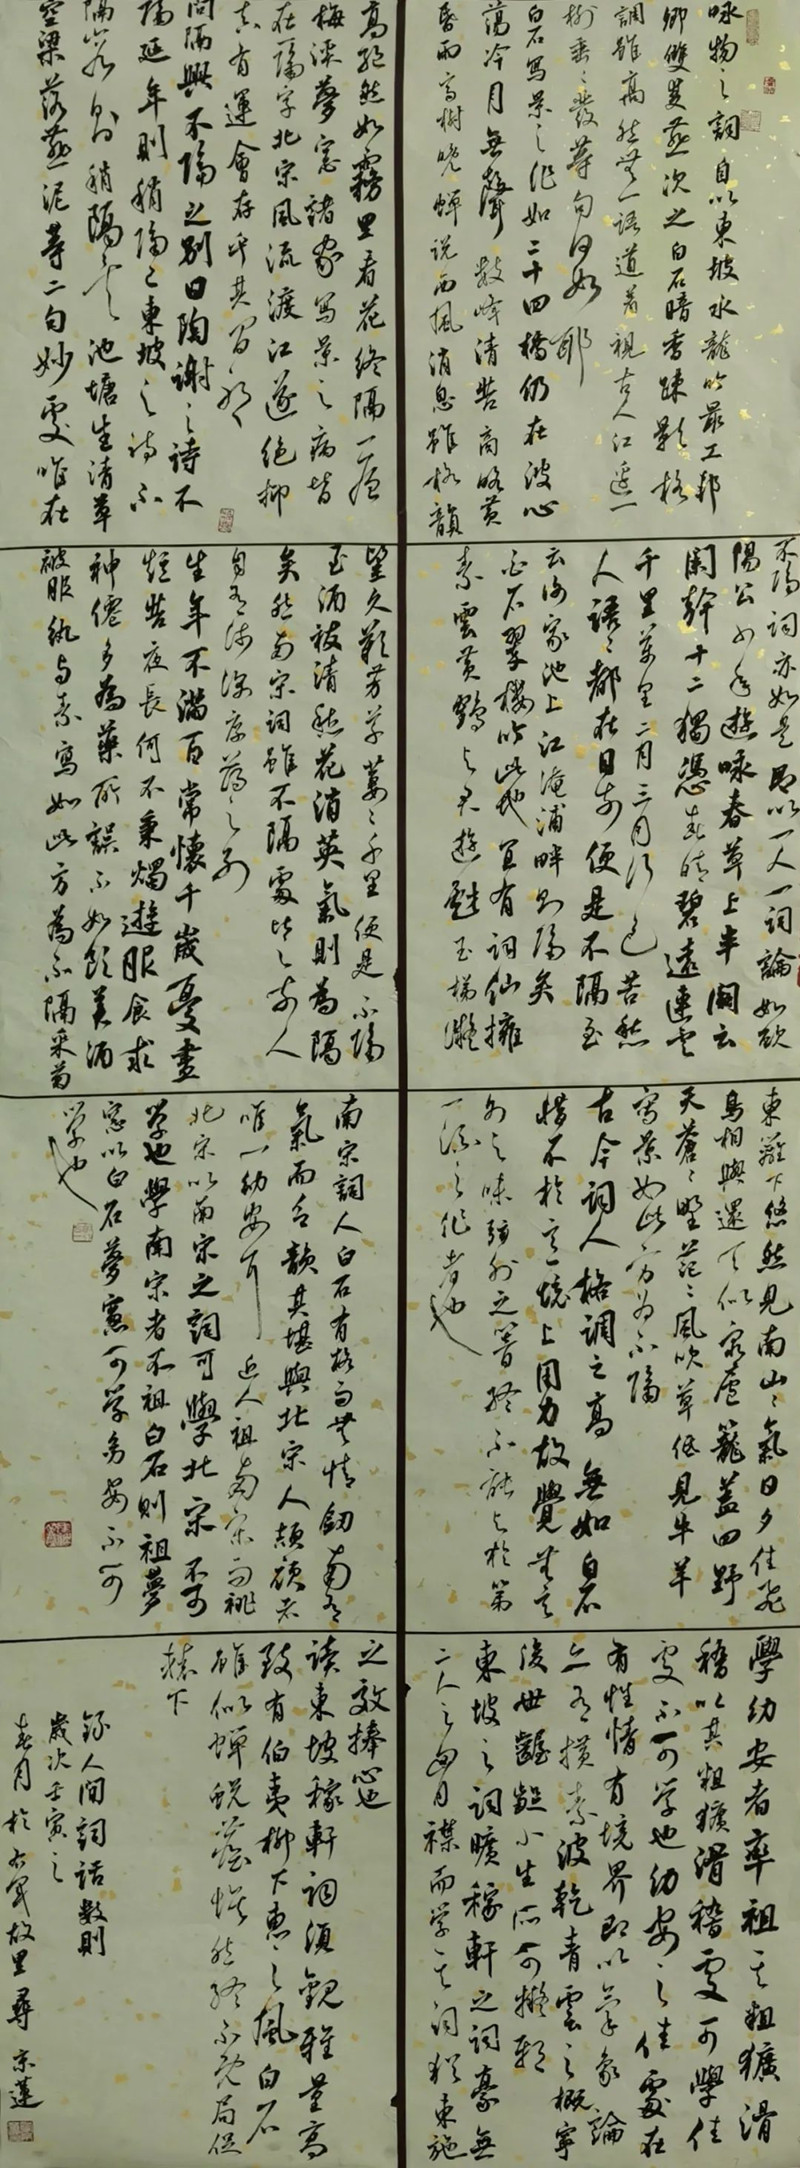 咏物之詞自以東坡水龍吟最工邦
卿雙雙燕次之白石暗香疎影格
調雖高然無一語道著視古人江邊一
樹垂〻發等句何如耶
白石寫景之作如二十四橋仍在波心
蕩冷月無聲數峰清苦商略黃
昏雨高樹晚蟬说西風消息雖格韻
高絕然如霧里看花終隔一层
梅溪夢窓諸家寫景之病皆
在一隔字北宋風流渡江遂絕抑
真有運會存乎其間耶
問隔與不隔之別曰陶謝之詩不
隔延年則稍隔已東坡之詩不
隔山谷則稍隔矣池塘生清草
空梁落燕泥等二句妙處唯在
不隔詞亦如是即以一人一詞論如欧
陽公少年遊咏春草上半闋云
闌幹十二獨憑春晴碧遠連雲
千里萬里二月三月行色苦愁
人語〻都在目前便是不隔至
云谢家池上江淹浦畔則隔矣
白石翠楼吟此地宜有詞仙擁
素雲黃鶴与君遊戲玉梯凝
望久歎芳草萋〻千里便是不隔
至酒祓清愁花消英氣則為隔
矣然南宋詞雖不隔處比之前人
自有浅深厚薄之别
生年不滿百常懷千歲憂晝
短苦夜長何不秉燭遊服食求
神僊多為藥所誤不如飲美酒
被服纨与素寫如此方為不隔采菊
東籬下悠然見南山〻氣日夕佳飛
鳥相與還天似穹廬籠蓋四野
天蒼〻野茫〻風吹草低見牛羊
寫景如此方为不隔
古今詞人格調之高無如白石
惜不於意境上用力故覺無言
外之味弦外之響終不能与於第
一流之作者也
南宋詞人白石有格而無情劍南有
氣而乏韻其堪與北宋人頡頏者
唯一幼安耳 近人祖南宋而祧
北宋以南宋之詞可學北宋不可
學也學南宋者不祖白石則祖夢
窓以白石夢窓可学幼安不可
学也
學幼安者率祖其粗獷滑
稽以其粗獷滑稽處可學佳
處不可学也幼安之佳處在
有性情有境界即以氣象論
亦有橫素波乾青雲之概寧
後世齷齪小生所可擬耶
東坡之詞曠稼軒之詞豪無
二人之胸襟而学其詞猶東施
之效捧心也
读東坡稼軒詞須觀雅量高
致有伯夷柳下惠之風白石
雖似蟬蜕塵埃然終不免局促
辕下
錄人間詞話数則
歲次壬寅之
春月於右軍故里尋京蓮